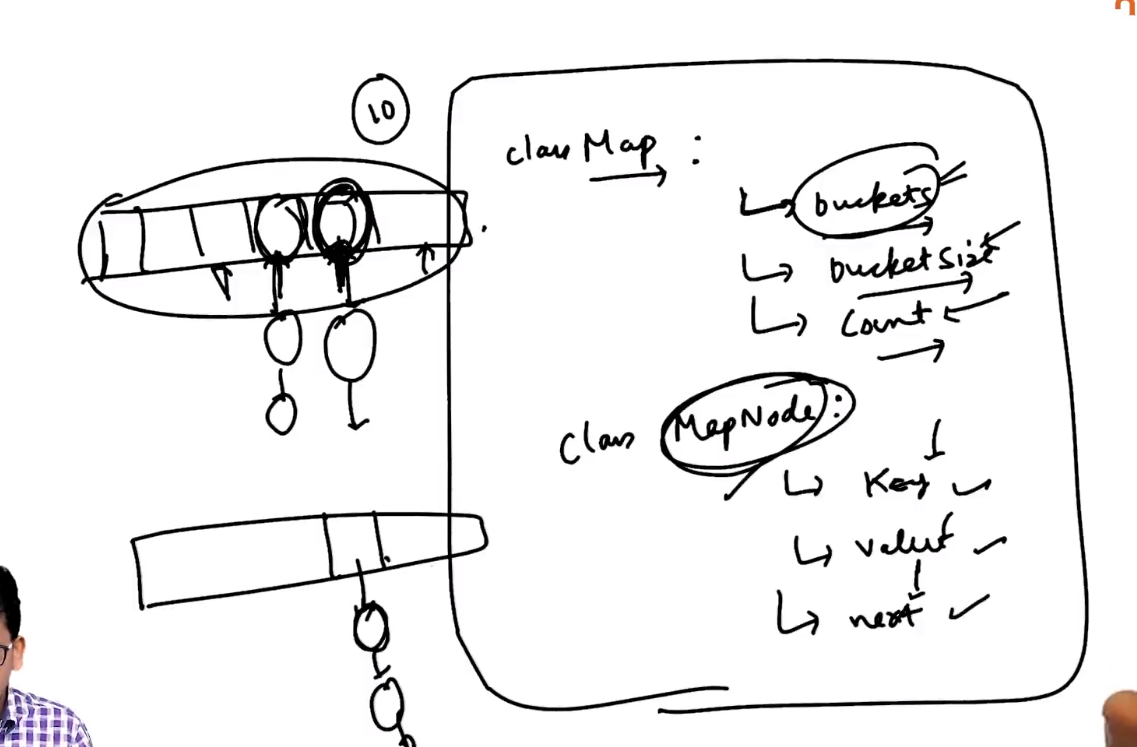 10
class Map :
buckets
bucketSize
Count
Class MapNode :
Key
value
next